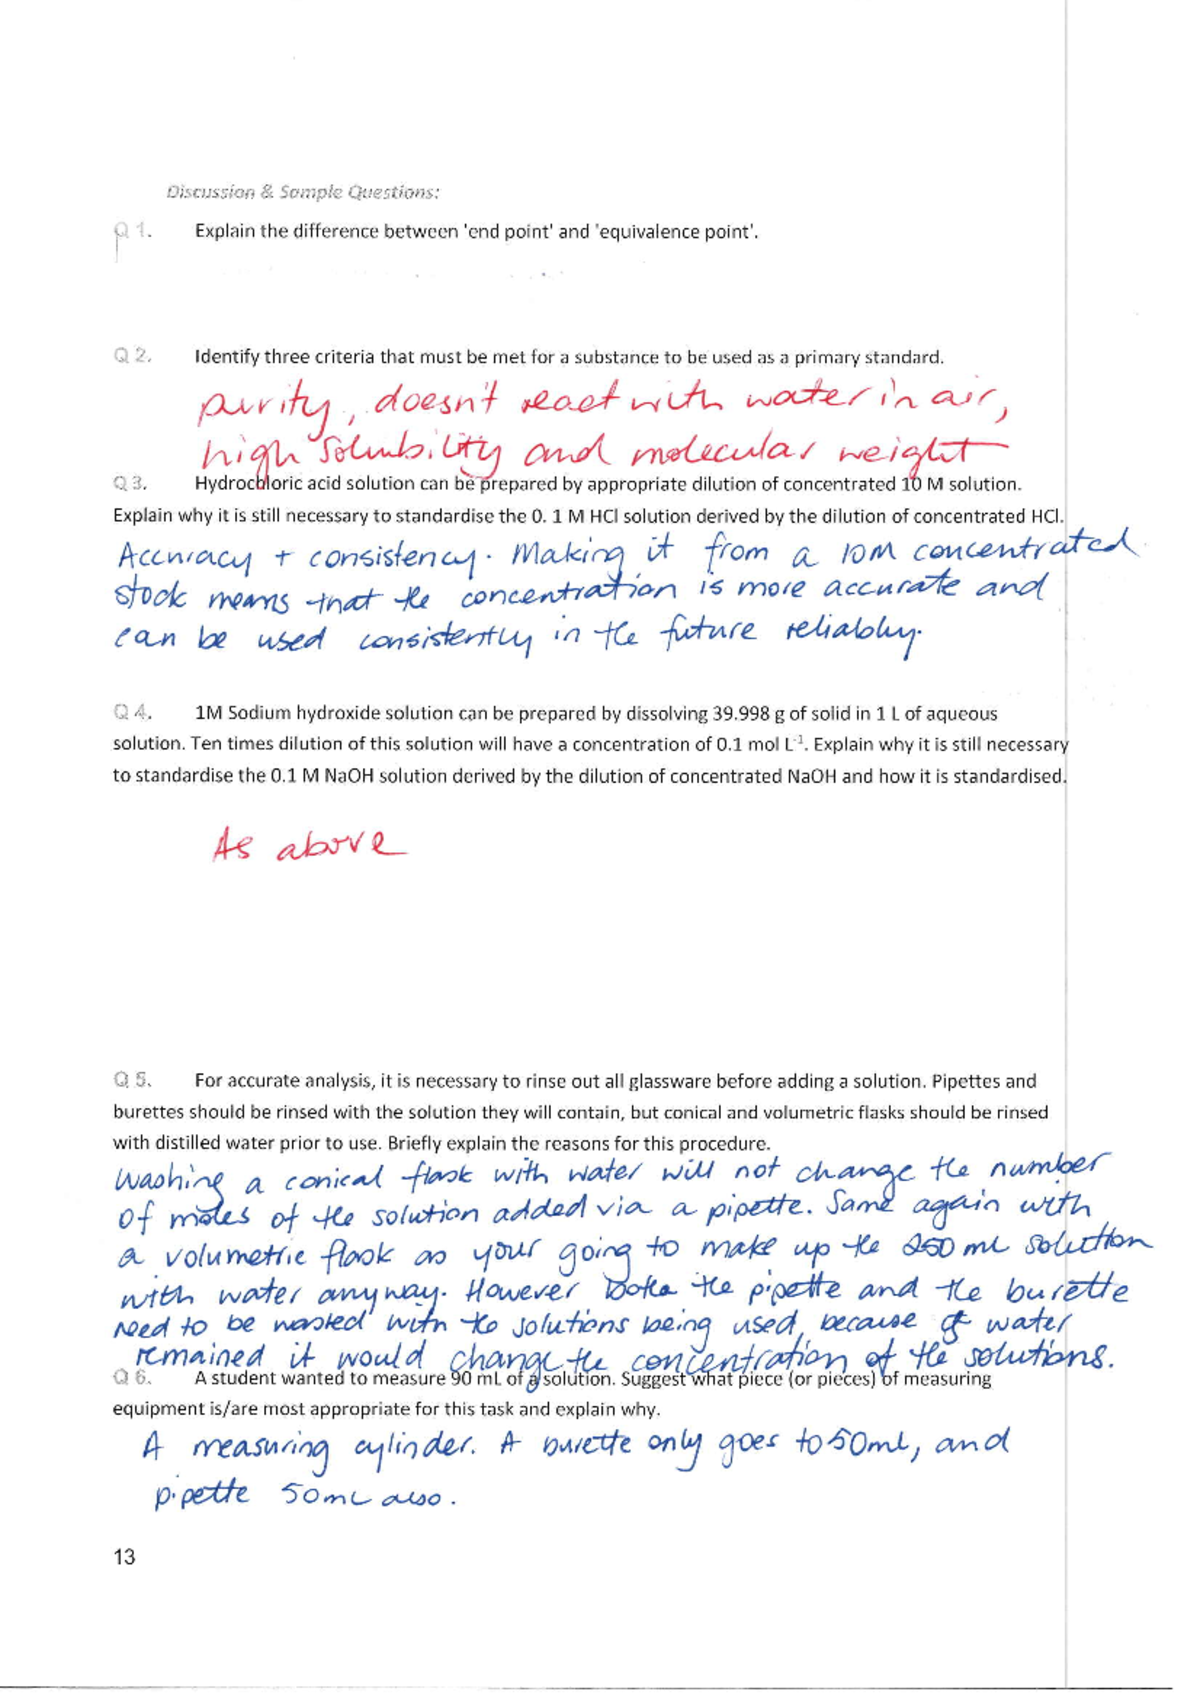 Discussion & Sample Questions:
Q 1. Explain the difference between 'end point' and 'equivalence point'.
Q 2. Identify three criteria that must be met for a substance to be used as a primary standard.
purity, doesn't react with water in air,
high solubility and molecular weight
Q 3. Hydrochloric acid solution can be prepared by appropriate dilution of concentrated 10 M solution.
Explain why it is still necessary to standardise the 0. 1 M HCl solution derived by the dilution of concentrated HCl.
Accuracy + consistency. Making it from a 10M concentrated
stock means that the concentration is more accurate and
can be used consistently in the future reliably.
Q 4. 1M Sodium hydroxide solution can be prepared by dissolving 39.998 g of solid in 1 L of aqueous
solution. Ten times dilution of this solution will have a concentration of 0.1 mol L⁻¹. Explain why it is still necessary
to standardise the 0.1 M NaOH solution derived by the dilution of concentrated NaOH and how it is standardised.
As above
Q 5. For accurate analysis, it is necessary to rinse out all glassware before adding a solution. Pipettes and
burettes should be rinsed with the solution they will contain, but conical and volumetric flasks should be rinsed
with distilled water prior to use. Briefly explain the reasons for this procedure.
Washing a conical flask with water will not change the number
of moles of the solution added via a pipette. Same again with
a volumetric flask as your going to make up the 250 mL solution
with water anyway. However both the pipette and the burette
need to be washed with the solutions being used, because if water
remained it would change the concentration of the solutions.
Q 6. A student wanted to measure 90 mL of a solution. Suggest what piece (or pieces) of measuring
equipment is/are most appropriate for this task and explain why.
A measuring cylinder. A burette only goes to 50mL, and
pipette 50mL also.
13